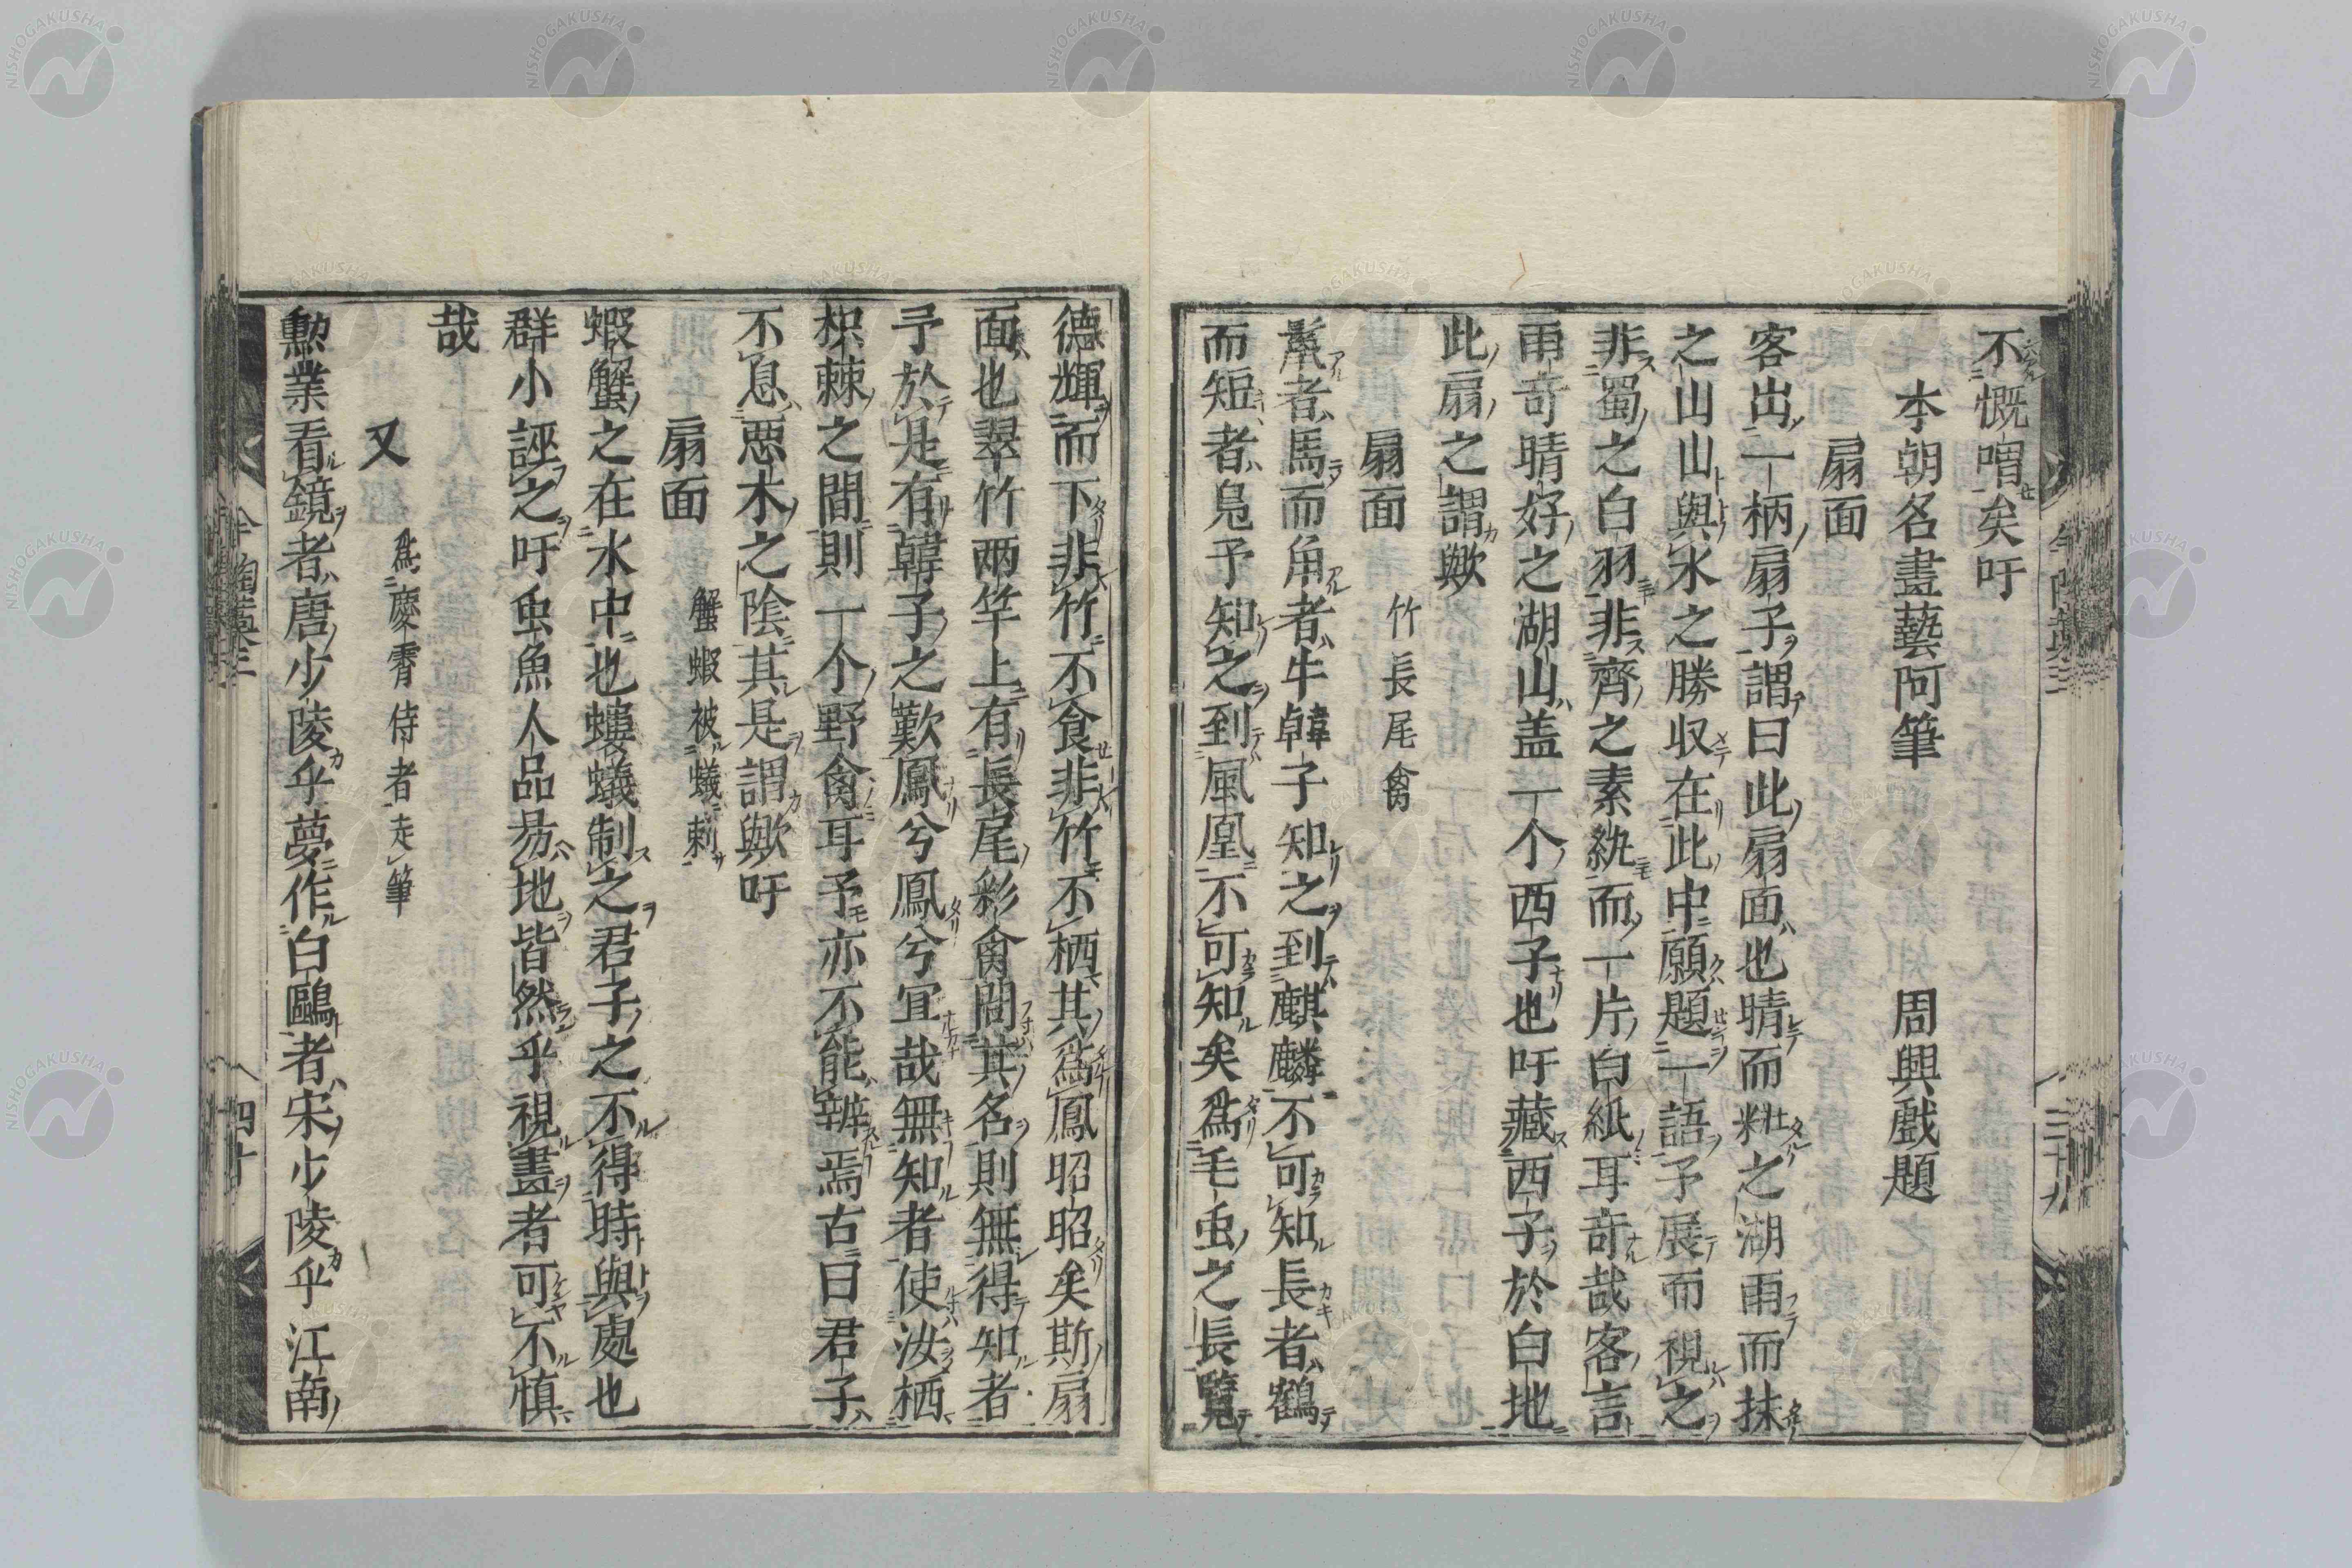 不慨喟矣吁
本朝名畫藝阿筆 周興戲題
扇面
客出一柄扇子謂曰此扇面也晴而粧之湖雨而抹
之山山與水之勝収在此中願題一語予展而視之
非蜀之白羽非齊之素紈而一片白紙耳奇哉客言
雨奇晴好之湖山盖一个西子也吁藏西子於白地
此扇之謂歟
扇面 竹長尾禽
鬣者馬而角者牛韓子知之到麒麟不可知長者鶴
而短者鳬予知之到風凰不可知矣爲毛虫之長覽
德輝而下非竹不食非竹不栖其爲鳳昭昭矣斯扇
面也翠竹兩竿上有長尾彩禽問其名則無得知者
予於是有韓子之歎鳳兮鳳兮宜哉無知者使汝栖
枳棘之間則一个野禽耳予亦不能辨焉古曰君子
不息惡木之陰其是謂歟吁
扇面 蟹蝦被蟻刺
蝦蟹之在水中也螻蟻制之君子之不得時與處也
群小誣之吁虫魚人品易地皆然乎視畫者可不慎
哉
又 爲慶霄侍者走筆
勲業看鏡者唐少陵乎夢作白鷗者宋少陵乎江南
三十九
四十
NISHOGAKUSHA